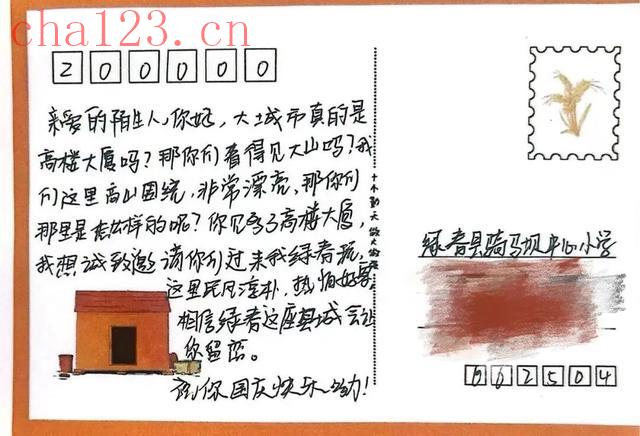 cha123.cn
200000
亲爱的陌生人,你好,大城市真的是
高楼大厦吗?那你们看得见大山吗?我
们这里高山围绕,非常漂亮,那你们
那里是怎么样的呢?你见多了高楼大厦,
我想诚致邀请你们过来我绿春玩,
这里民风淳朴,热情好客
相信绿春这座县城会让
你留恋。
祝你国庆快乐
绿春县骑马坝中心小学
662504